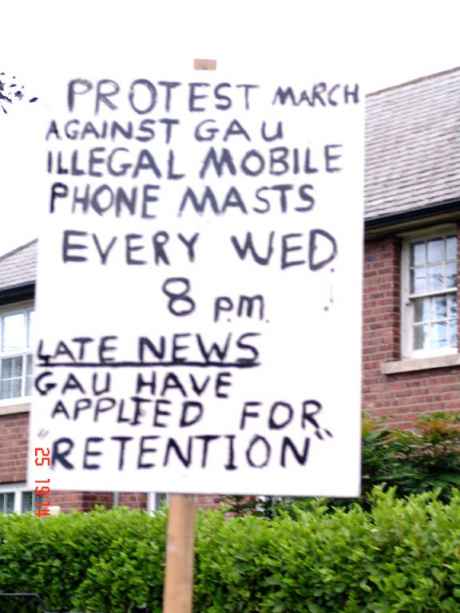 PROTEST MARCH
AGAINST GAU
ILLEGAL MOBILE
PHONE MASTS
EVERY WED.
8 p.m.
LATE NEWS
GAU HAVE
APPLIED FOR
"RETENTION"
25 19:14